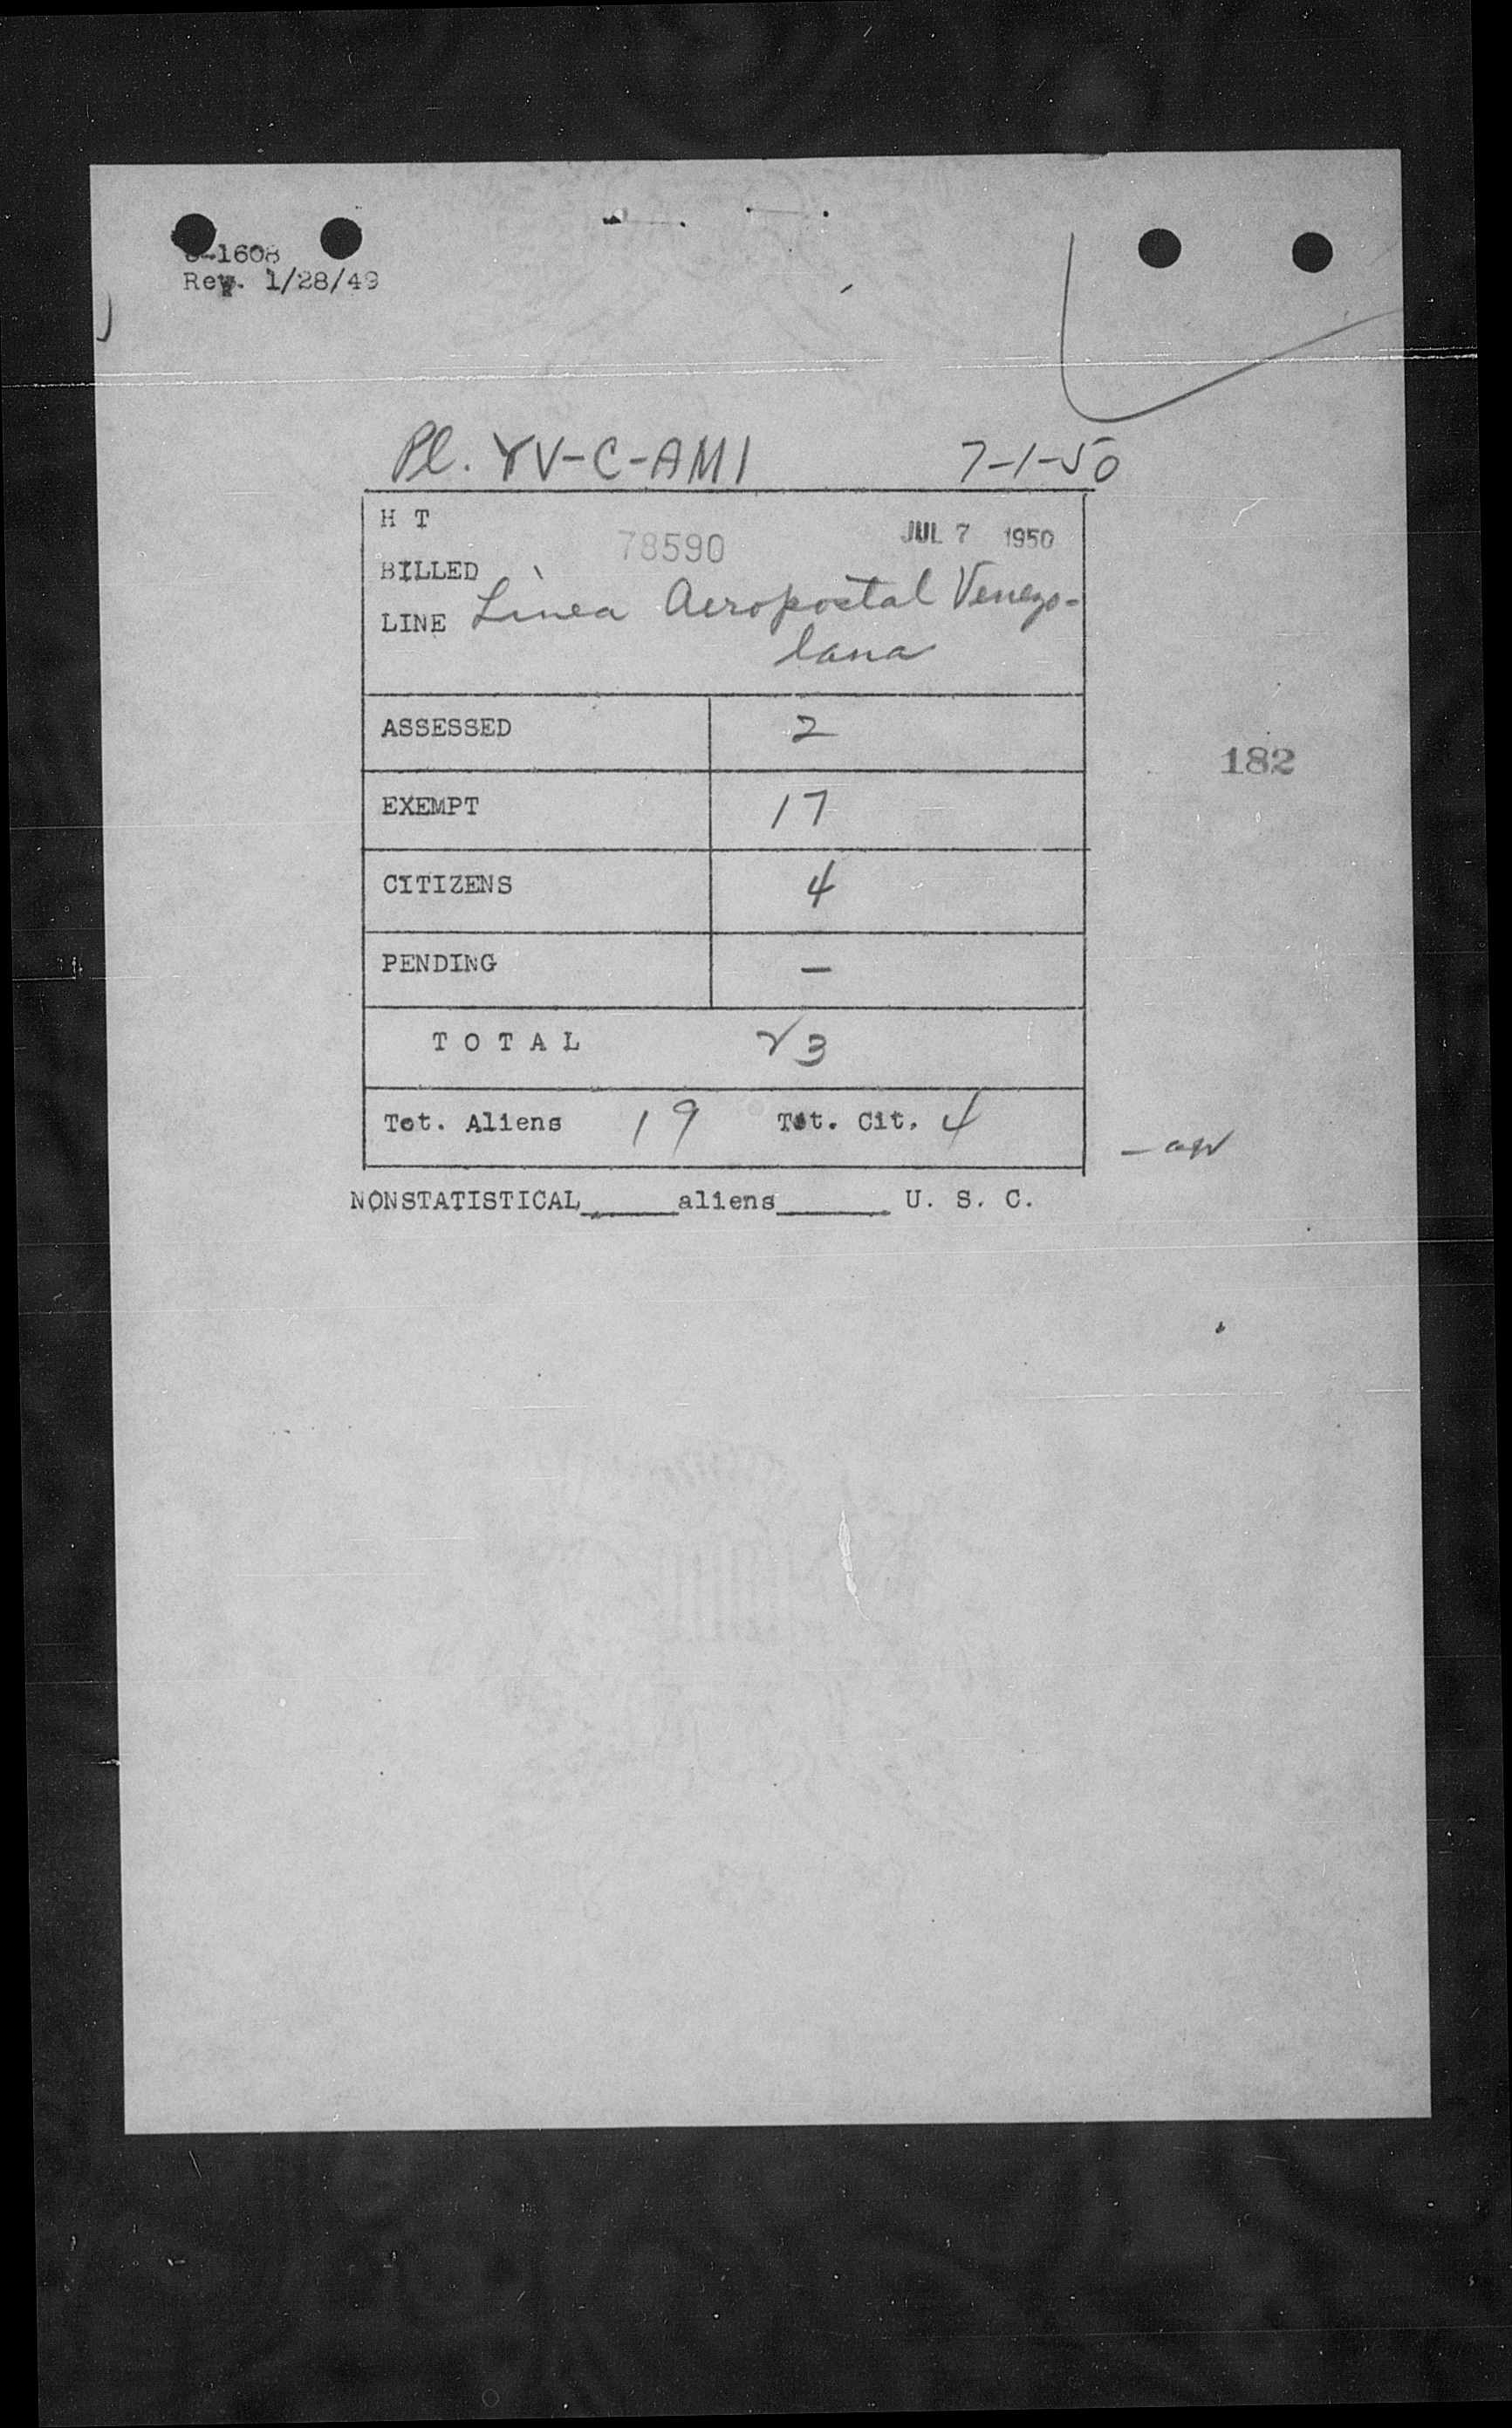 -1608
Rev. 1/28/49
Pl. YV-C-AM1 7-1-50
H T
78590 JUL 7 1950
BILLED
LINE Linea Aeropostal Venezo-
lana
ASSESSED 2
182
EXEMPT 17
CITIZENS 4
PENDING –
TOTAL 23
Tot. Aliens 19 Tot. Cit. 4
NONSTATISTICAL_____aliens______ U. S. C.